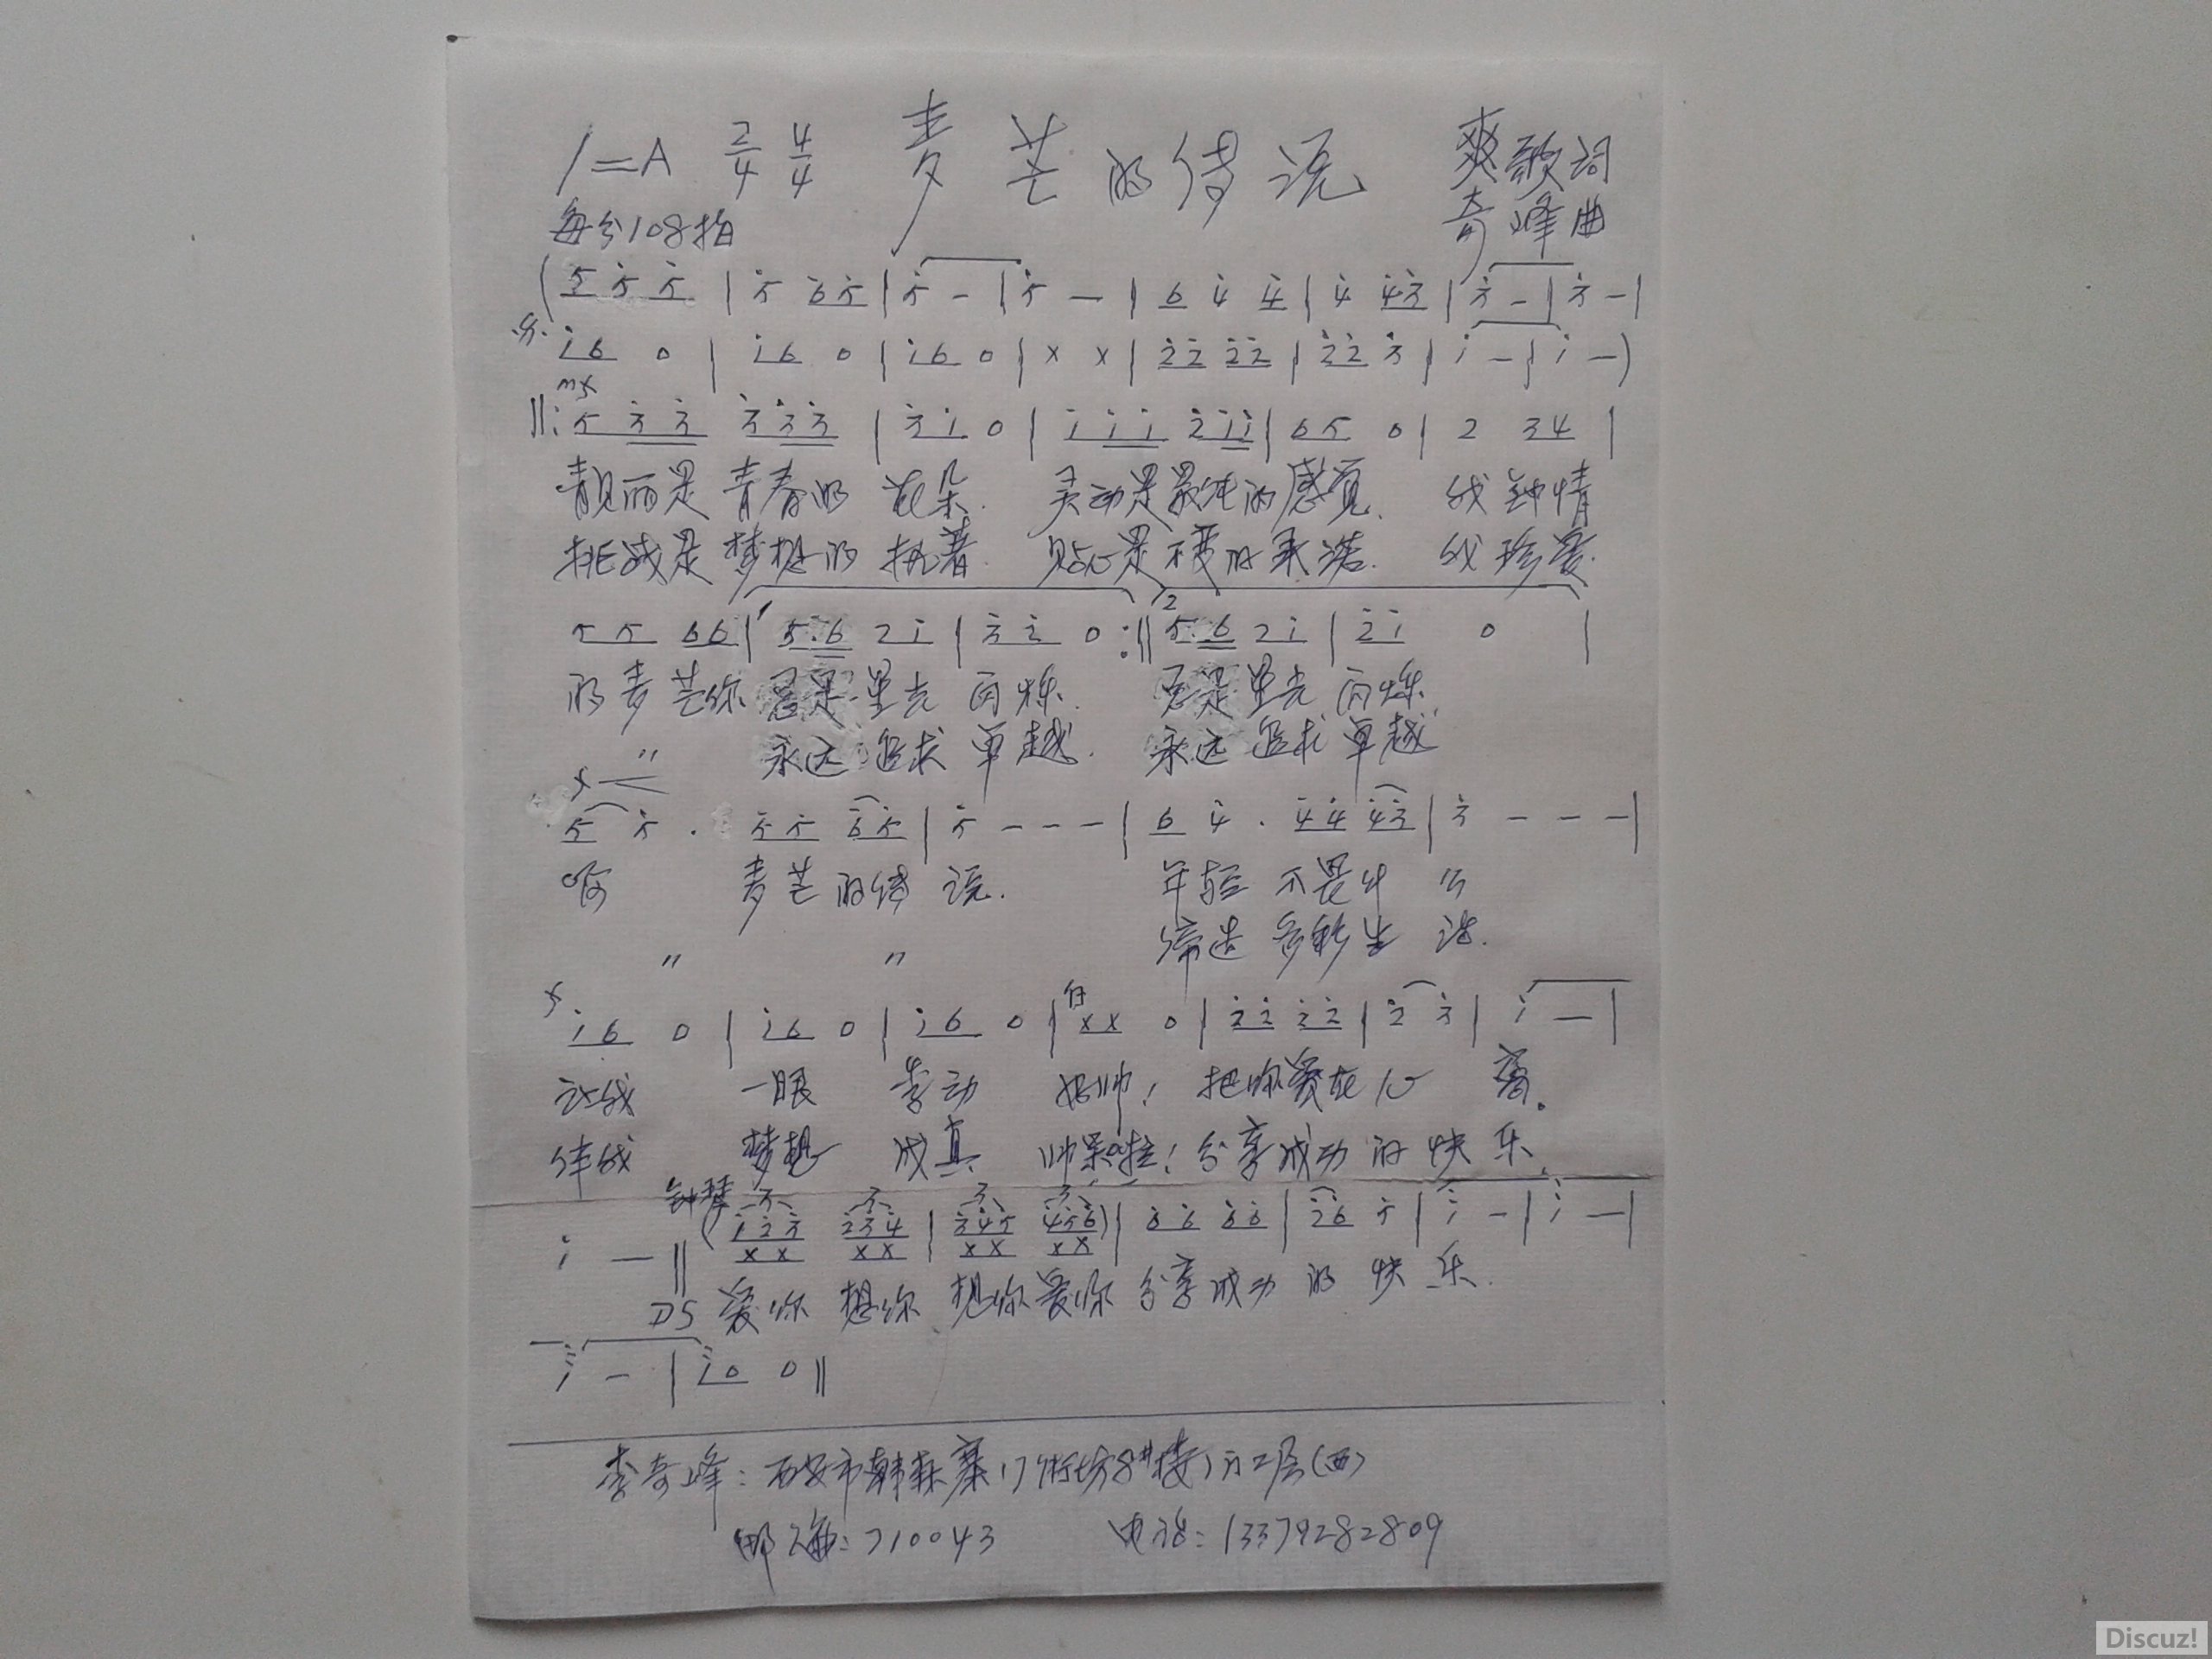 1=A 2/4 4/4 麦芒的传说 爽歌词
每分108拍 奇峰曲
(5 5 5 | 5 6 5 | 5 - | 5 - | 6 4 4 | 4 4 3 | 3 - | 3 - |
i 6 0 | i 6 0 | i 6 0 | x x | 2 2 2 2 | 2 2 3 | i - | i - )
mf
‖: 5 3 3 3 3 3 | 3 i 0 | i i i 2 i i | 6 5 0 | 2 3 4 |
靓丽是青春的花朵. 灵动是最纯的感觉. 我钟情
挑战是梦想的执著. 贴心是不变的承诺. 我珍爱.
5 5 6 6 | 5. 6 2 i | 3 2 0 :‖ 5. 6 2 i | 2 i 0 |
的麦芒你总是星光闪烁. 总是星光闪烁.
〃 永远追求卓越. 永远追求卓越
f
5 5 . 5 5 6 5 | 5 - - - | 6 4 . 4 4 4 3 | 3 - - - |
啊 麦芒的传说. 年轻不畏什么
〃 〃 缔造多彩生活.
f i 6 0 | i 6 0 | i 6 0 | 白 x x 0 | 2 2 2 2 | 2 3 | i - |
让我 一眼 心动 好帅! 把你爱在心窝.
伴我 梦想 成真 帅呆啦! 分享成功的快乐.
钟琴
i - ‖ (i 2 3 2 3 4 | 3 4 5 4 5 6) | 6 6 6 6 | 2 6 5 | i - | i - |
x x x x x x x x
DS 爱你想你想你爱你分享成功的快乐.
i - | i 0 0 ‖
李奇峰: 西安市韩森寨17街坊8#楼1门2层(西)
邮编: 710043 电话: 13379282809
Discuz!